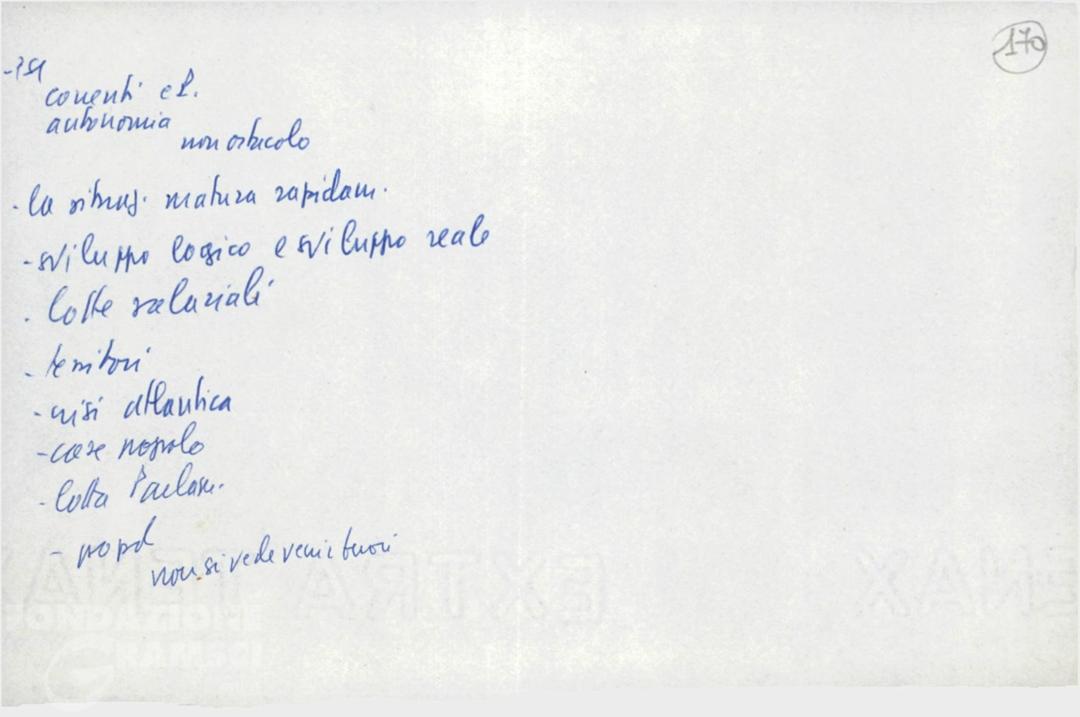 170
- PSI
correnti e P.
autonomia
non ostacolo
- la situaz. matura rapidam.
- sviluppo logico e sviluppo reale
- lotte salariali
- territori
- crisi atlantica
- case popolo
- lotta Parlam.
-
non si vede venir fuori
EXTRA
FONDAZIONE
GRAMSCI